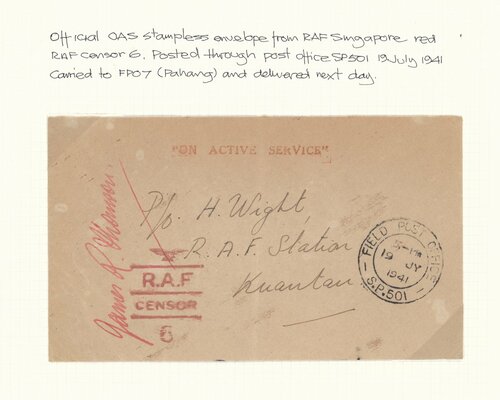 Official OAS stampless envelope from RAF Singapore red
RAF Censor 6. Posted through post office SP501 19 July 1941
Carried to FPO7 (Pahang) and delivered next day.
"ON ACTIVE SERVICE"
P/o. H. Wight,
R.A.F. Station
Kuantan
James R.
R.A.F
CENSOR
6
FIELD POST OFFICE
19 JY
1941
S.P.501